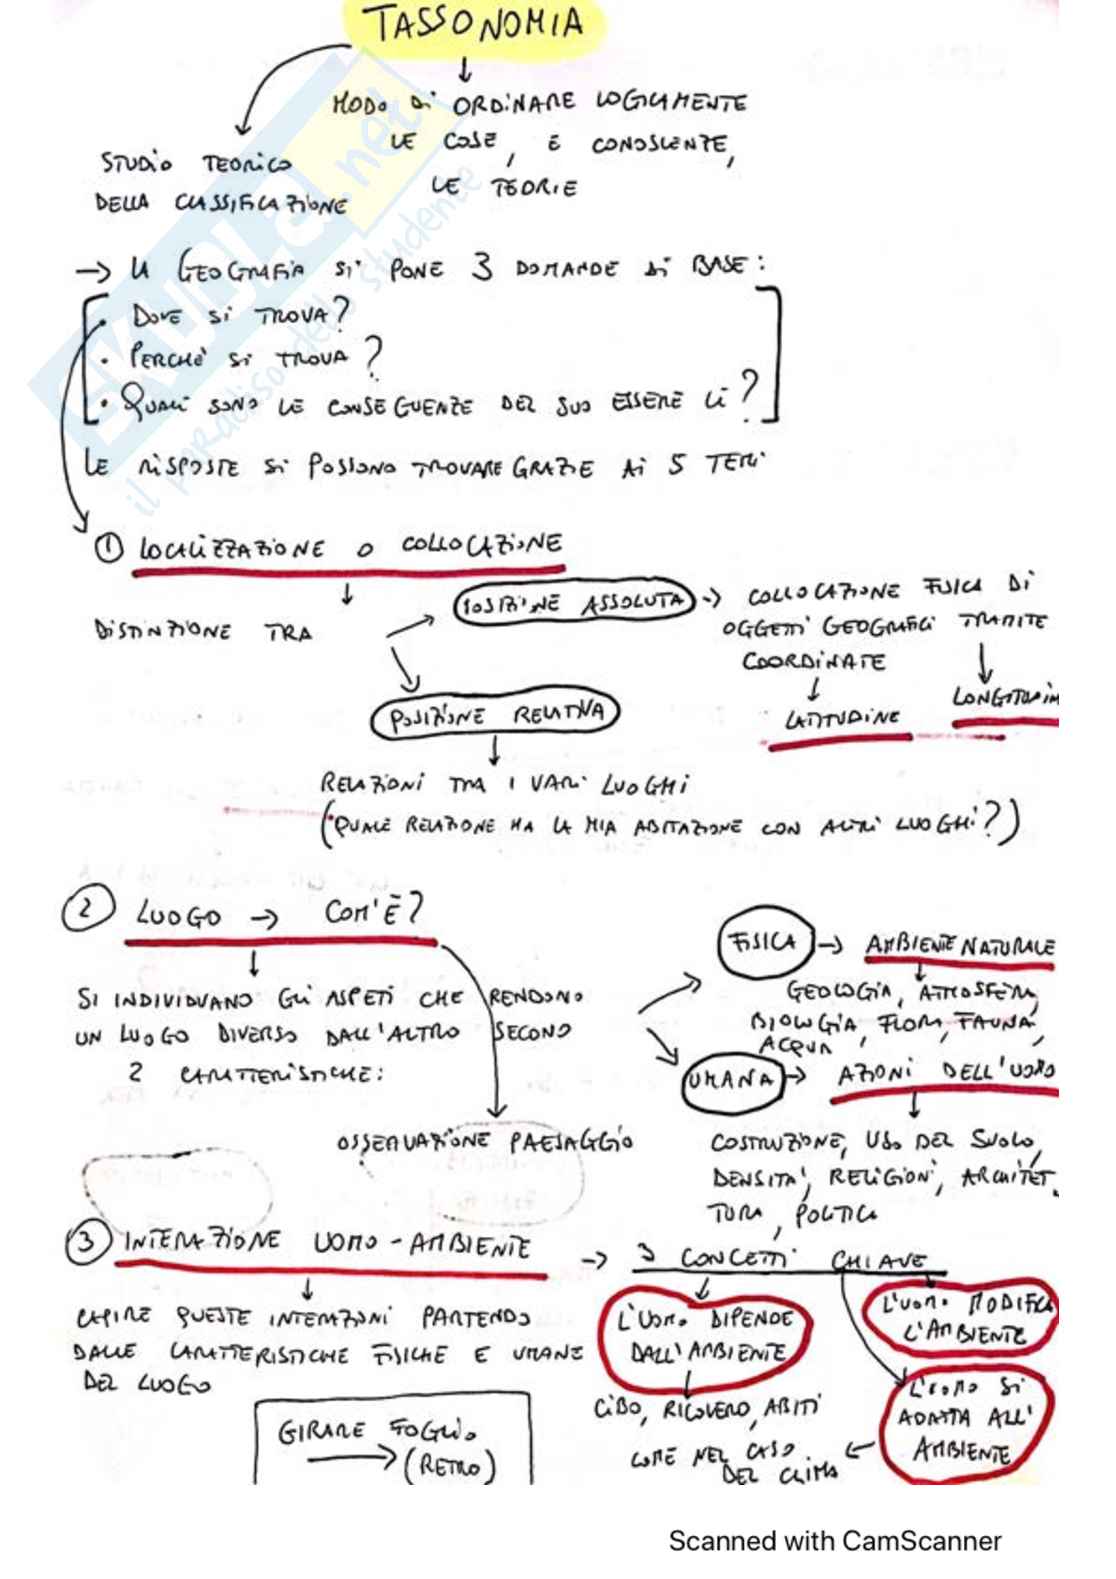 TASSONOMIA
MODO DI ORDINARE LOGICAMENTE
LE COSE, E CONOSCENZE,
LE TEORIE
STUDIO TEORICO
DELLA CLASSIFICAZIONE
→ LA GEOGRAFIA SI PONE 3 DOMANDE DI BASE:
· DOVE SI TROVA?
· PERCHÈ SI TROVA?
· QUALI SONO LE CONSEGUENZE DEL SUO ESSERE LÌ?
LE RISPOSTE SI POSSONO TROVARE GRAZIE AI 5 TEMI
① LOCALIZZAZIONE O COLLOCAZIONE
DISTINZIONE TRA
POSIZIONE ASSOLUTA → COLLOCAZIONE FISICA DI
OGGETTI GEOGRAFICI TRAMITE
COORDINATE
LATITUDINE
LONGITUDIN
POSIZIONE RELATIVA
RELAZIONI TRA I VARI LUOGHI
(QUALE RELAZIONE HA LA MIA ABITAZIONE CON ALTRI LUOGHI?)
② LUOGO → COM'È?
SI INDIVIDUANO GLI ASPETI CHE RENDONO
UN LUOGO DIVERSO DALL'ALTRO SECONDO
2 CARATTERISTICHE:
OSSERVAZIONE PAESAGGIO
FISICA → AMBIENTE NATURALE
GEOLOGIA, ATMOSFERA,
BIOLOGIA, FLORA, FAUNA,
ACQUA
UMANA → AZIONI DELL'UOMO
COSTRUZIONE, USO DEL SUOLO,
DENSITA', RELIGIONI, ARCHITET
TURA, POLITICA
③ INTERAZIONE UOMO-AMBIENTE → 3 CONCETTI CHIAVE
CAPIRE QUESTE INTERAZIONI PARTENDO
DALLE CARATTERISTICHE FISICHE E UMANE
DEL LUOGO
L'UOMO DIPENDE
DALL'AMBIENTE
CIBO, RICOVERO, ABITI
L'UOMO MODIFICA
L'AMBIENTE
L'UOMO SI
ADATTA ALL'
AMBIENTE
COME NEL CASO
DEL CLIMA
GIRARE FOGLIO
→ (RETRO)
SKUOLA.net
il paradiso dello studente
Scanned with CamScanner